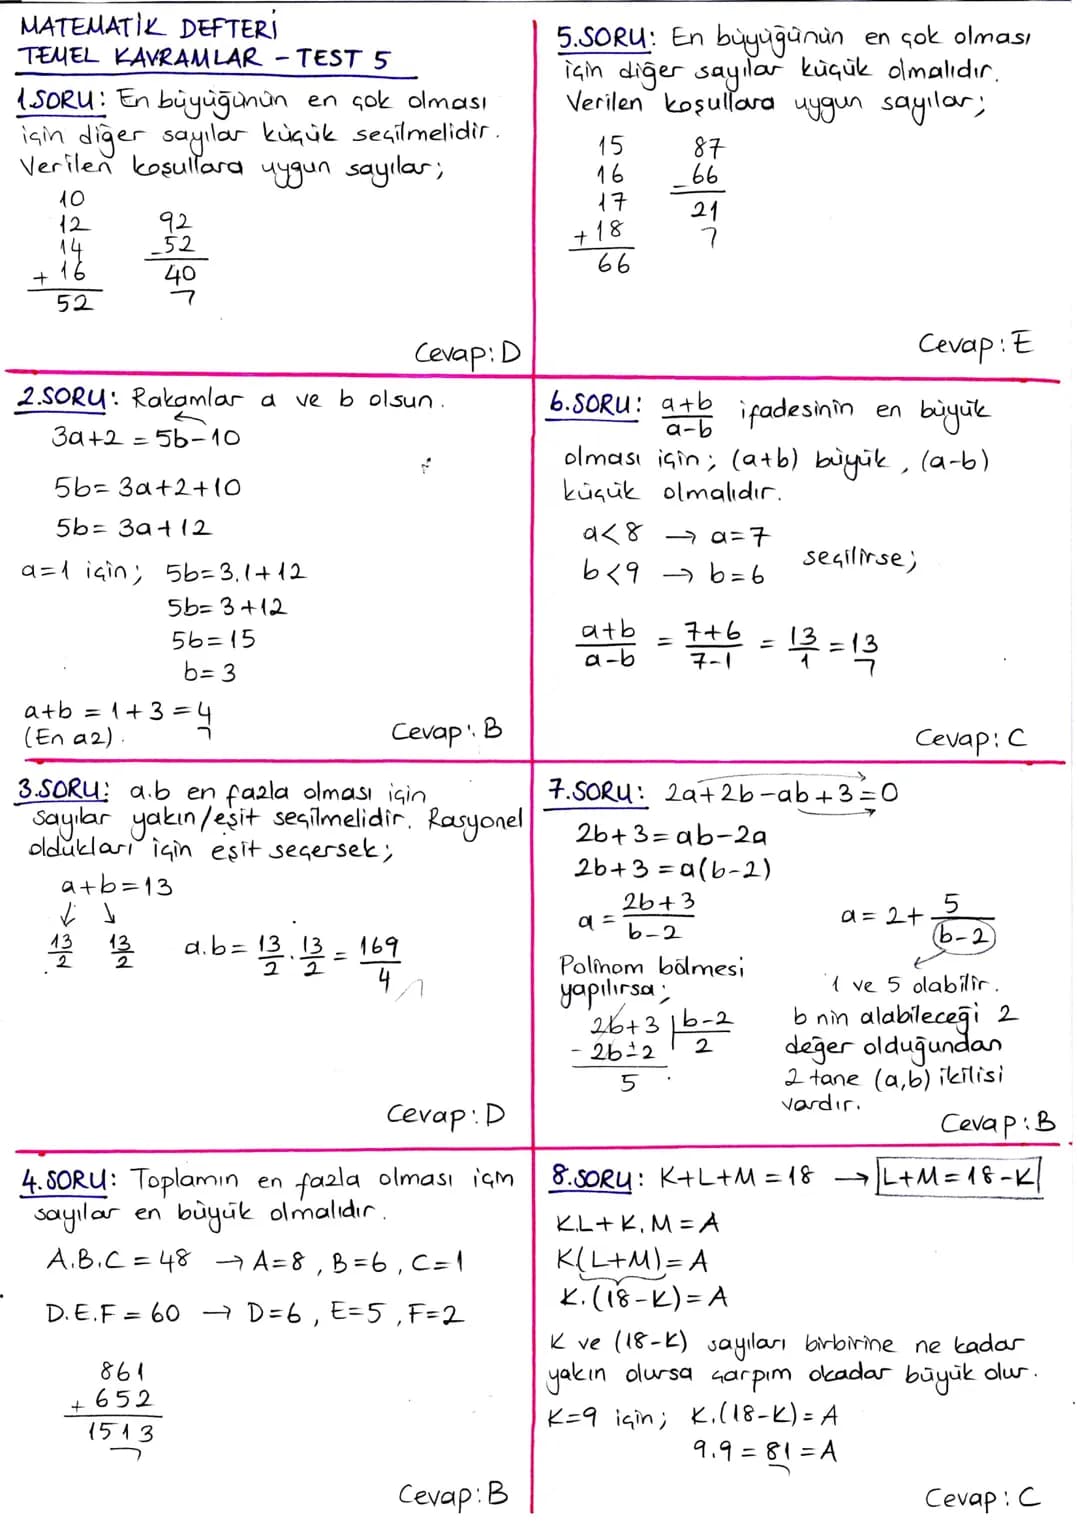 MATEMATİK DEFTERİ
TEMEL KAVRAMLAR - TEST 5
1.SORU: En büyüğünün en çok olması
için diğer sayılar küçük seçilmelidir.
Verilen koşullara uygun sayılar;
10
12
14
+ 16
52
92
-52
40
Cevap: D
2.SORU: Rakamlar a ve b olsun.
3a+2 = 5b-10
5b= 3a+2+10
5b= 3a+12
a=1 için; 5b=3.1+12
5b= 3+12
5b=15
b= 3
a+b = 1+3 = 4
(En az).
Cevap: B
3.SORU: a.b en fazla olması için
sayılar yakın/eşit seçilmelidir. Rasyonel
oldukları için eşit seçersek;
a+b=13
13/2 13/2 a.b= 13/2 . 13/2 = 169/4
Cevap: D
4.SORU: Toplamın en fazla olması için
sayılar en büyük olmalıdır.
A.B.C = 48 → A=8, B=6, C=1
D.E.F = 60 → D=6, E=5, F=2
861
+ 652
1513
Cevap: B
5.SORU: En büyüğünün en çok olması
için diğer sayılar küçük olmalıdır.
Verilen koşullara uygun sayılar;
15
16
17
+ 18
66
87
-66
21
Cevap: E
6.SORU: a+b/a-b ifadesinin en büyük
olması için; (a+b) büyük, (a-b)
küçük olmalıdır.
a<8 → a=7
b<9 → b=6
seçilirse;
a+b/a-b = 7+6/7-1 = 13/1 = 13
Cevap: C
7.SORU: 2a+2b-ab+3=0
2b+3=ab-2a
2b+3=a(b-2)
a = 2b+3/b-2
Polinom bölmesi
yapılırsa;
2b+3 | b-2
- 2b±2 | 2
5
a= 2+ 5/(b-2)
1 ve 5 olabilir.
b nin alabileceği 2
değer olduğundan
2 tane (a,b) ikilisi
vardır.
Cevap: B
8.SORU: K+L+M=18 → L+M=18-K
K.L+K.M = A
K(L+M)= A
K.(18-K)= A
K ve (18-K) sayıları birbirine ne kadar
yakın olursa çarpım okadar büyük olur.
K=9 için; K.(18-K)= A
9.9 = 81 = A
Cevap: C